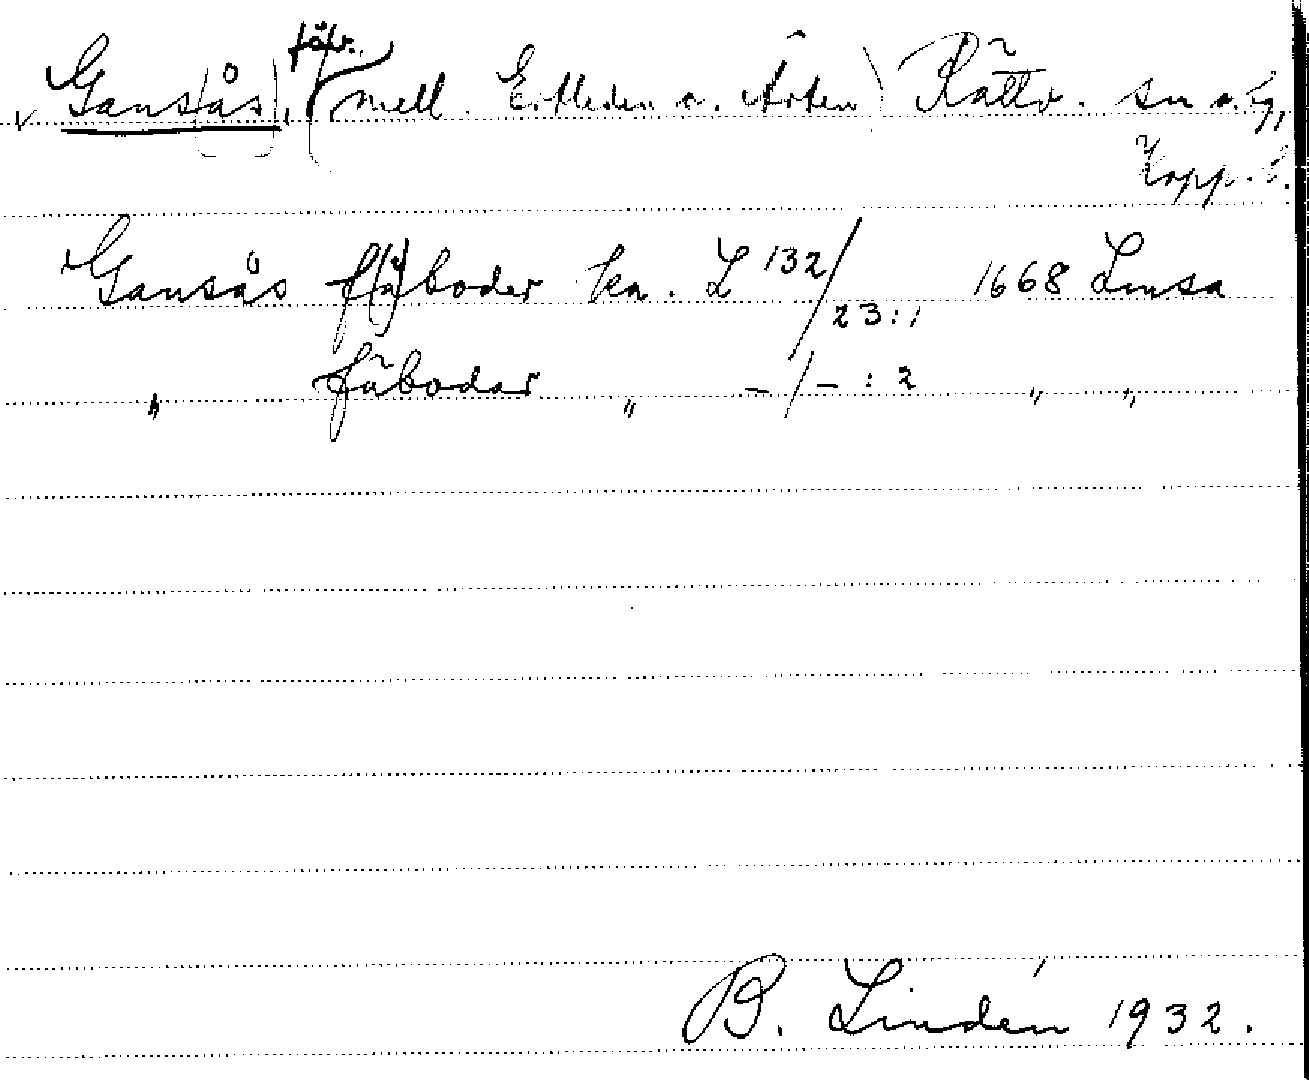 v Gansås, fäb. (mell. Ertleden o. Ärten) Rättv. sn o. tg,
Kopp. l.
Gansås f(ä)boder ka. L 132/23:1 1668
„ fäbodar „ –/–:2 „ „
B. Lindén 1932.